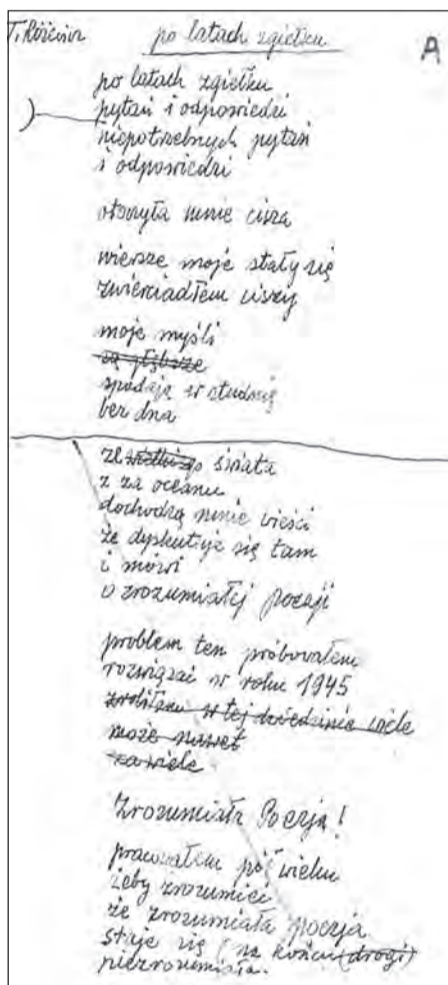 T. Różewicz po latach zgiełku A
po latach zgiełku
pytań i odpowiedzi
niepotrzebnych pytań
i odpowiedzi
otoczyła mnie cisza
wiersze moje stały się
zwierciadłem ciszy
moje myśli
są głębsze
spadają w studnię
bez dna
ze wielkiego świata
z za oceanu
dochodzą mnie wieści
że dyskutuje się tam
i mówi
o zrozumiałej poezji
problem ten próbowałem
rozwiązać w roku 1945
zrobiłem w tej dziedzinie wiele
może nawet
za wiele
Zrozumiała Poezja!
pracowałem pół wieku
żeby zrozumieć
że zrozumiała poezja
staje się (na końcu (drogi)
niezrozumiała.